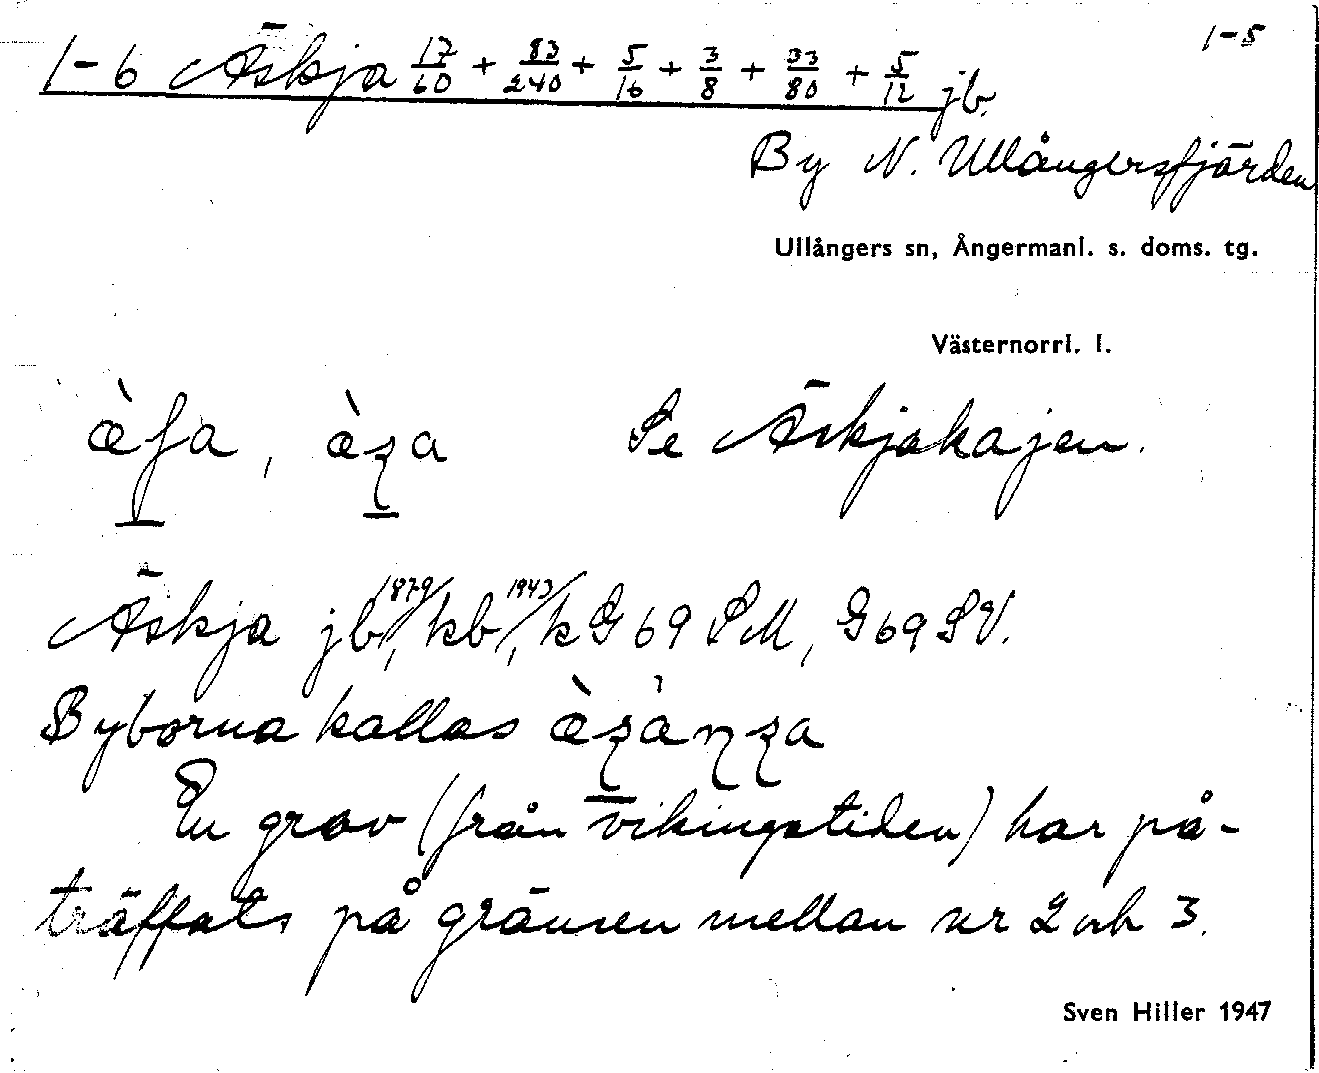 1-5
1-6 Äskja 17/60 + 83/240 + 5/16 + 3/8 + 33/80 + 5/12 jb.
By N. Ullångersfjärden
Ullångers sn, Ångermanl. s. doms. tg.
Västernorrl. l.
Se Äskjakajen.
Äskja jb 1879, kb 1943, k G 69 SM, G 69 SV.
Byborna kallas
En grav (från vikingatiden) har på-
träffats på gränsen mellan nr 2 och 3.
Sven Hiller 1947